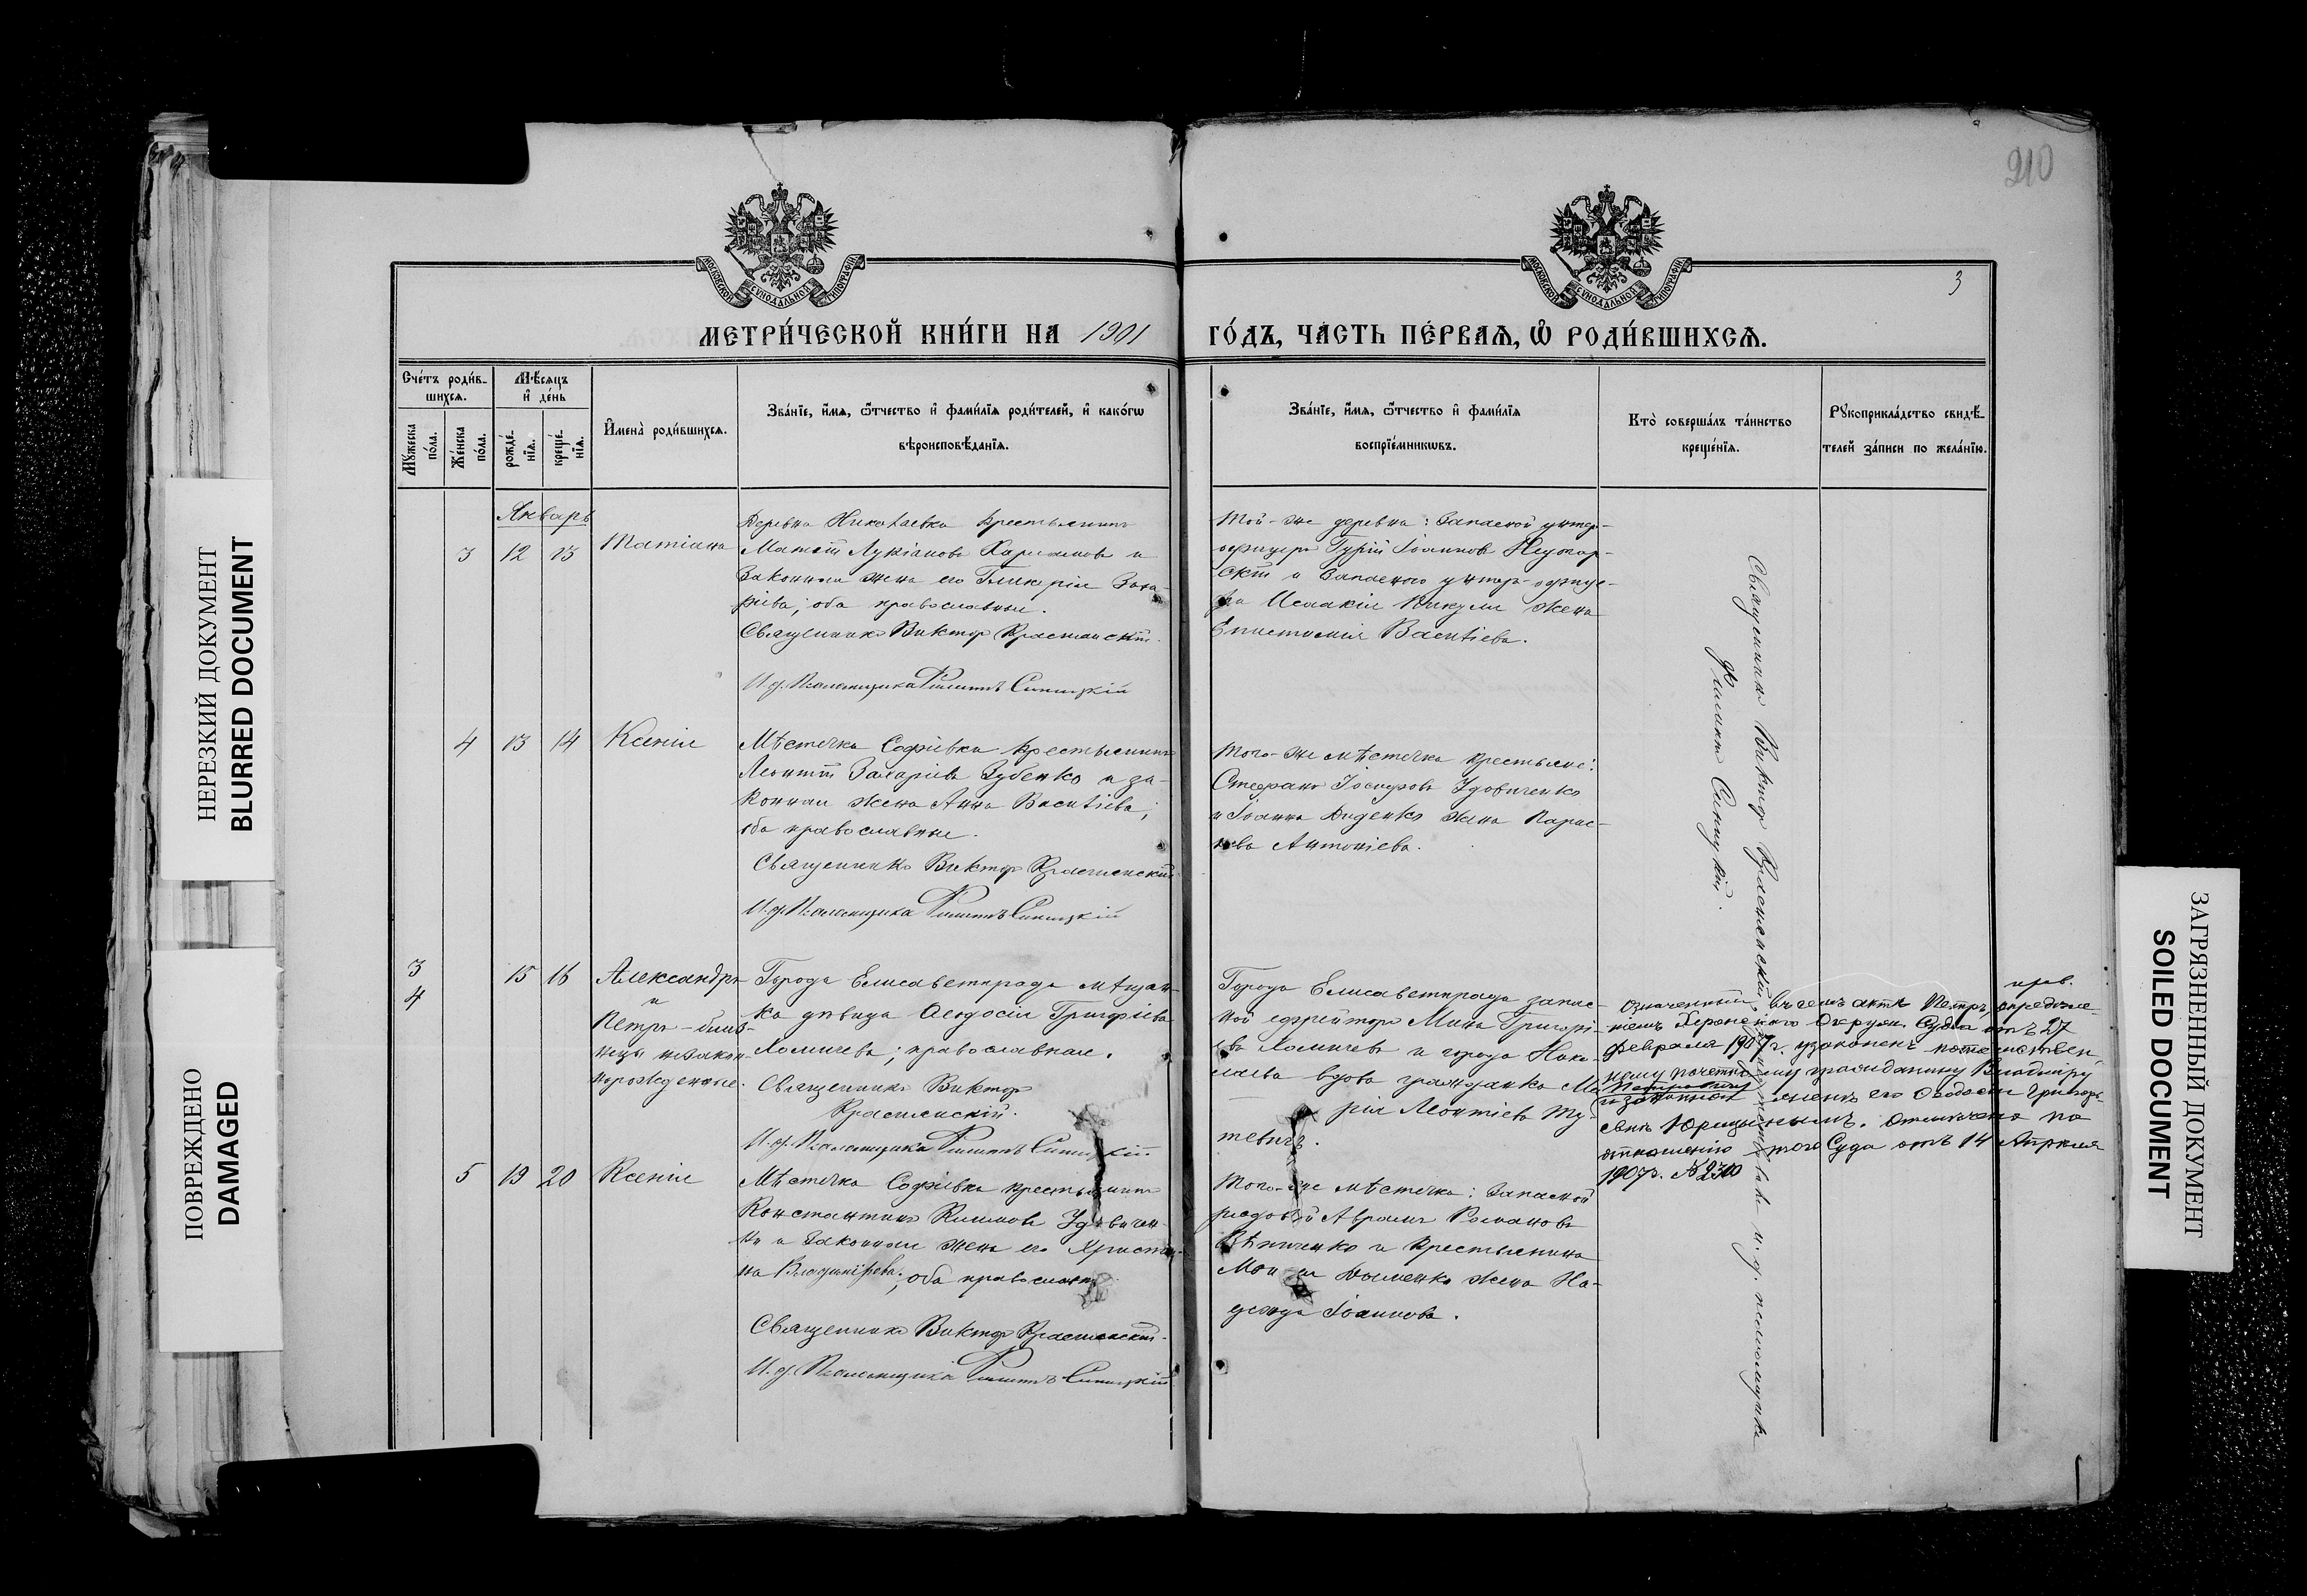 210
3
МОСКОВСКОЙ СУНОДАЛЬНОЙ ТИПОГРАФІИ
МОСКОВСКОЙ СУНОДАЛЬНОЙ ТИПОГРАФІИ
МЕТРИ́ЧЕСКОЙ КНИ́ГИ НА 1901
ГО́ДЪ, ЧА́СТЬ ПЕ́РВАѦ, Ѡ҆ РОДИ́ВШИХСѦ.
Сче́тъ роди́в-
шихсѧ.
Мѣ́сѧцъ
и҆ де́нь
Мꙋ́жеска
по́ла.
Же́нска
по́ла.
рожде́-
нїѧ.
креще́-
нїѧ.
И҆мена̀ роди́вшихсѧ.
Зва́нїе, и҆́мѧ, ѻ҆́тчество и҆ фами́лїѧ роди́телей, и҆ како́гѡ
вѣроисповѣ́данїѧ.
Зва́нїе, и҆́мѧ, ѻ҆́тчество и҆ фами́лїѧ
воспрїе́мникѡвъ.
Кто̀ соверша́лъ та́инство
креще́нїѧ.
Рꙋкоприкла́дство свидѣ́-
телей за́писи по жела́нїю.
Январь
3 12 13 Татіана
Деревни Николаевки крестьянинъ
Матѳій Лукіановъ и
законная жена его Гликерія Заха-
ріева; оба православные.
Священникъ Виктор Крыжановскій
И. д. Псаломщика Филиппъ Синицкій
Той-же деревни: Запасной унтер-
офицеръ Гурій Іоанновъ
и Запасного унтер-офице-
ра Исаакія жена
Епистимія Васильева.
4 13 14 Ксенія
Мѣстечка Софіевки крестьянинъ
Леонтій Захаріевъ Зубенко и за-
конная жена Анна Васильева;
оба православные.
Священникъ Виктор
И. д. Псаломщика Филиппъ Синицкій
Того-же мѣстечка крестьяне:
Стефанъ Іосифовъ Удовиченко
и Іоанна Диденко жена Парас-
кева Антоніева.
3
4
15 16 Александръ
и
Петръ - близ-
нецы незакон-
норожденные.
Города Елисаветграда мѣщан-
ка дѣвица Ѳеодосія Григоріева
Хомичева; православная.
Священникъ Виктор
И. д. Псаломщика Филиппъ Синицкій
Города Елисаветграда запас-
ной ефрейторъ Мина Григорі-
евъ Хомичевъ и города Нико-
лаева вдова гражданка Ма-
рія Леонтіева Ту-
тевичъ.
прав.
Означенный въ семъ актѣ Петръ, опредѣле-
ніемъ Херсонскаго Окружн. Суда отъ 27
Февраля 1907 г. узаконенъ потомствен-
ному почетному гражданину Владиміру
и законной женѣ его Ѳеодосіи Григорь-
евнѣ Юрицынымъ. Отмѣчено по
отношенію того Суда отъ 14 Апрѣля
1907 г. № 2310
5 19 20 Ксенія
Мѣстечка Софіевки крестьянинъ
Константинъ Климовъ Удовичен-
ко и законная жена его Христи-
на Владимірова; оба православные.
Священникъ Виктор
И. д. Псаломщика Филиппъ Синицкій
Того-же мѣстечка: Запасной
рядовой Аврамъ Романовъ
и крестьянина
жена На-
дежда Іоаннова.
Священникъ Виктор и. д. псаломщика
Филиппъ Синицкій.
НЕРЕЗКИЙ ДОКУМЕНТ
BLURRED DOCUMENT
ПОВРЕЖДЕНО
DAMAGED
ЗАГРЯЗНЕННЫЙ ДОКУМЕНТ
SOILED DOCUMENT